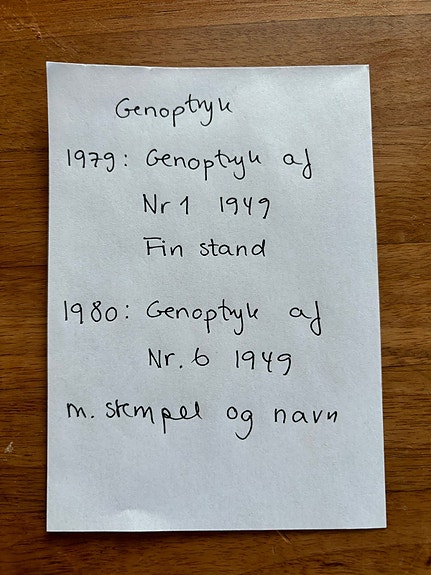 Genoptryk
1979: Genoptryk af
Nr 1 1949
Fin stand
1980: Genoptryk af
Nr. 6 1949
m. stempel og navn